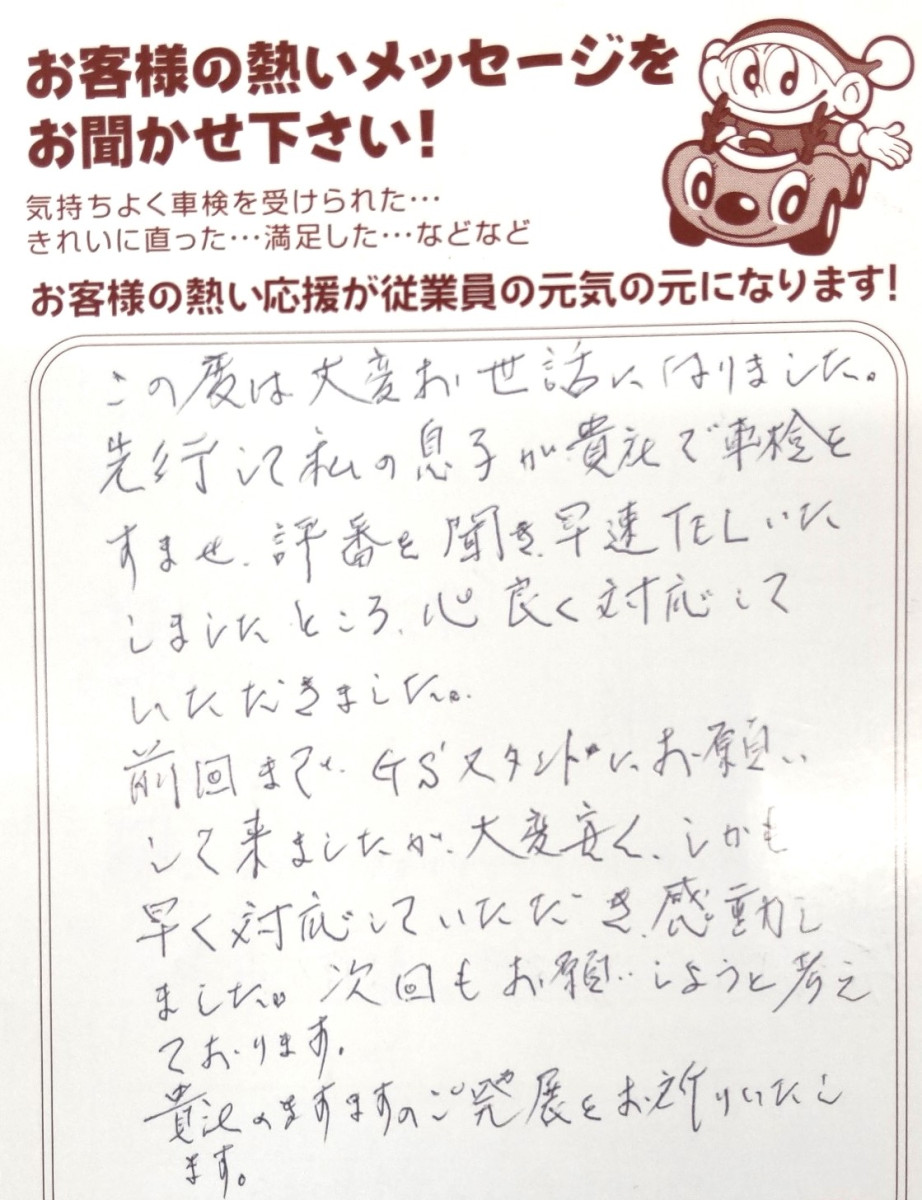 お客様の熱いメッセージを
お聞かせ下さい!
気持ちよく車検を受けられた…
きれいに直った…満足した…などなど
お客様の熱い応援が従業員の元気の元になります!
この度は大変お世話になりました。
先行して私の息子が貴社で車検を
すませ、評番を聞き、早速TELいた
しましたところ、心良く対応して
いただきました。
前回まで、GSスタンドにお願い
して来ましたが、大変安く、しかも
早く対応していただき、感動し
ました。次回もお願いしようと考え
ております。
貴社のますますのご発展をお祈りいたし
ます。